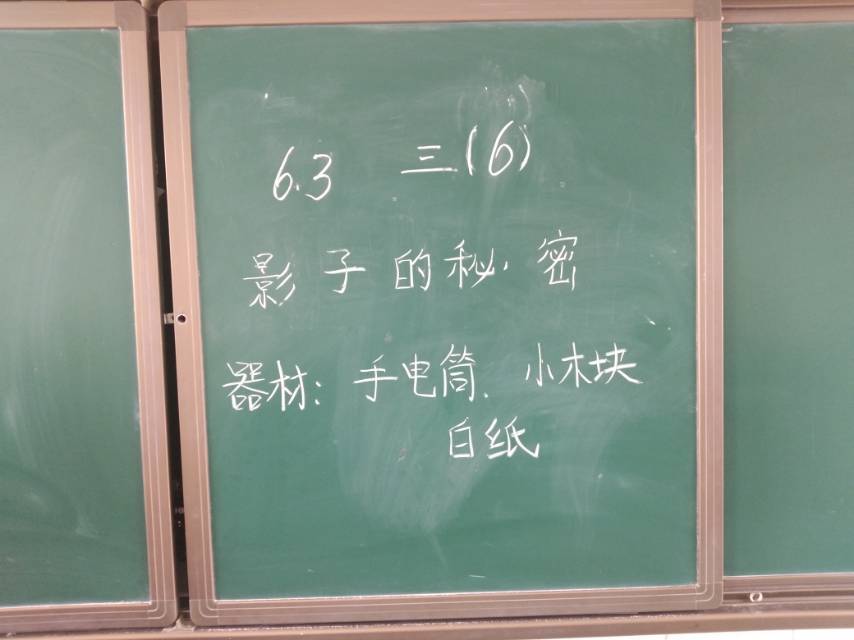 6.3 三(6)
影子的秘密
器材：手电筒、小木块
白纸